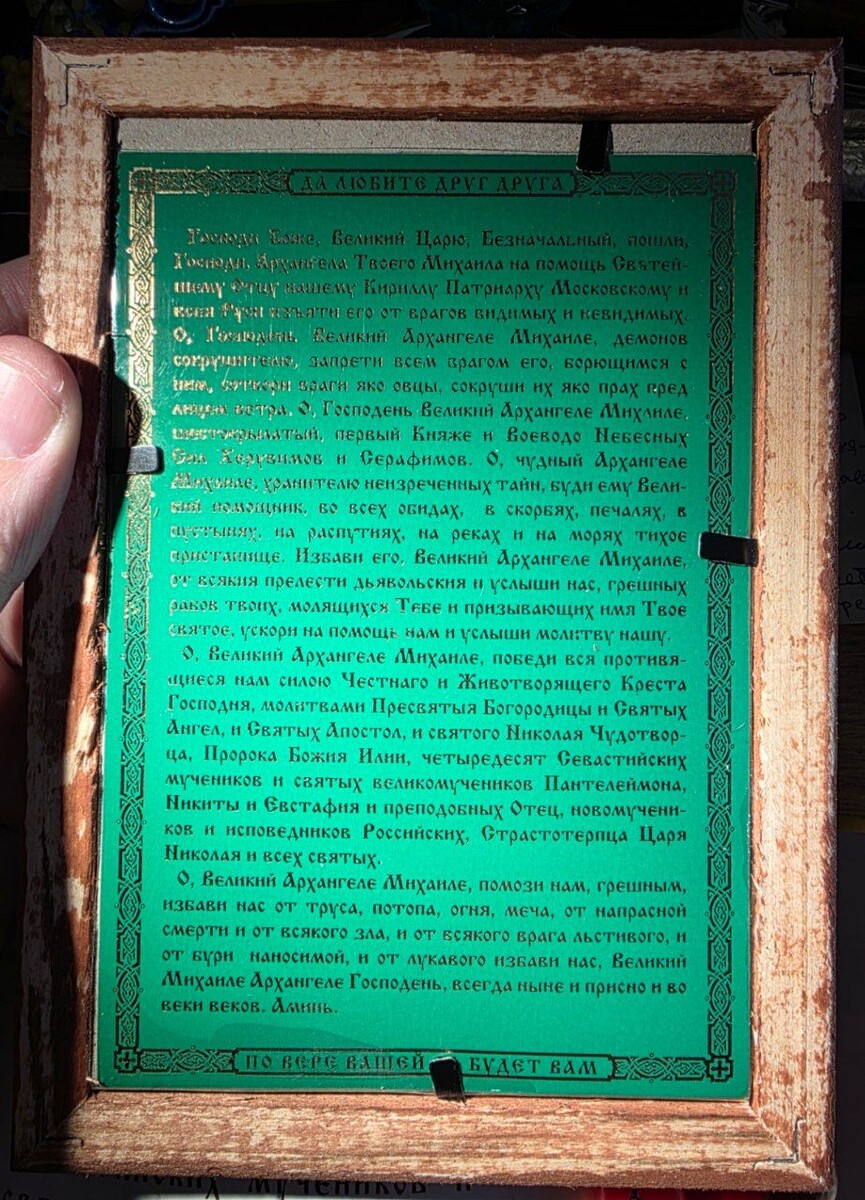 ДА ЛЮБИТЕ ДРУГ ДРУГА
Господи Боже, Великий Царю, Безначальный, пошли,
Господи, Архангела Твоего Михаила на помощь Святей-
шему Отцу нашему Кириллу Патриарху Московскому и
всея Руси изъяти его от врагов видимых и невидимых.
О, Господень Великий Архангеле Михаиле, демонов
сокрушителю, запрети всем врагом его, борющимся с
ним, сотвори враги яко овцы, сокруши их яко прах пред
лицем ветра. О, Господень Великий Архангеле Михаиле,
шестокрылатый, первый Княже и Воеводо Небесных
Сил Херувимов и Серафимов. О, чудный Архангеле
Михаиле, хранителю неизреченных тайн, буди ему Вели-
кий помощник, во всех обидах, в скорбях, печалях, в
пустынях, на распутиях, на реках и на морях тихое
пристанище. Избави его, Великий Архангеле Михаиле,
от всякия прелести дьявольския и услыши нас, грешных
рабов твоих, молящихся Тебе и призывающих имя Твое
святое, ускори на помощь нам и услыши молитву нашу.
О, Великий Архангеле Михаиле, победи вся противя-
щиеся нам силою Честнаго и Животворящего Креста
Господня, молитвами Пресвятыя Богородицы и Святых
Ангел, и Святых Апостол, и святого Николая Чудотвор-
ца, Пророка Божия Илии, четыредесят Севастийских
мучеников и святых великомучеников Пантелеймона,
Никиты и Евстафия и преподобных Отец, новомучени-
ков и исповедников Российских, Страстотерпца Царя
Николая и всех святых.
О, Великий Архангеле Михаиле, помози нам, грешным,
избави нас от труса, потопа, огня, меча, от напрасной
смерти и от всякого зла, и от всякого врага льстивого, и
от бури наносимой, и от лукавого избави нас, Великий
Михаиле Архангеле Господень, всегда ныне и присно и во
веки веков. Аминь.
ПО ВЕРЕ ВАШЕЙ БУДЕТ ВАМ
мучеников и